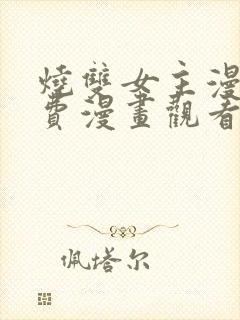 燒雙女主漫
費漫畫觀看
佩塔尔